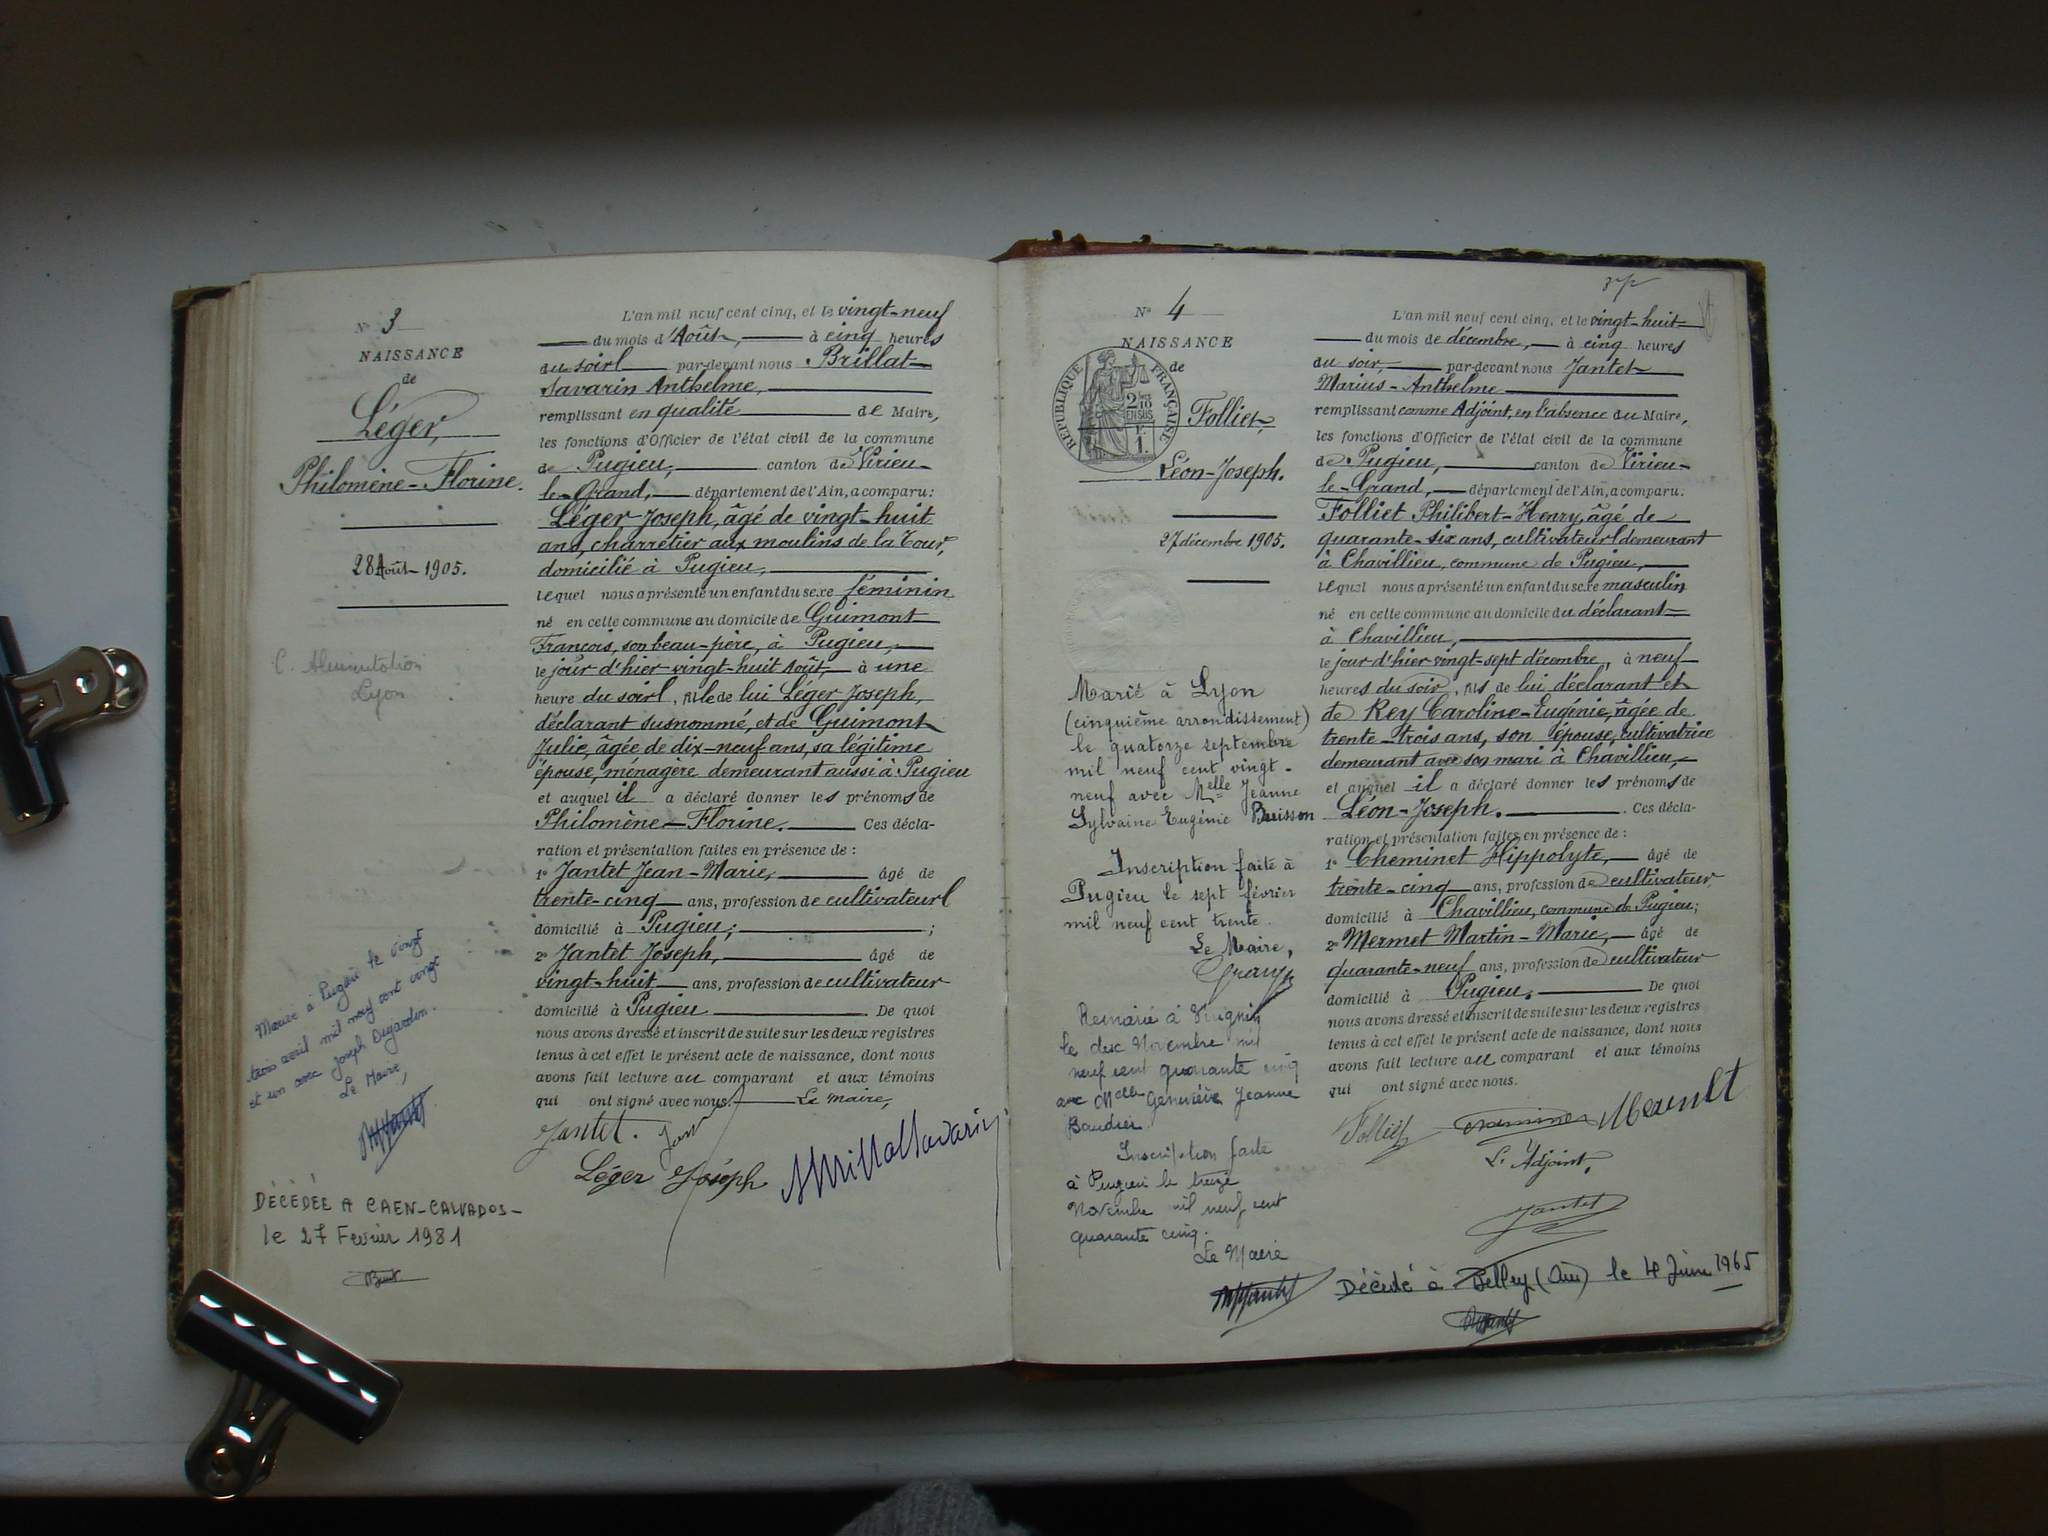 N° 3
NAISSANCE
de
Léger,
Philomène-Florine.
28 Août 1905.
C. Alimentation
Lyon
Mariée à Pugieu le vingt
trois avril mil neuf cent vingt
et un avec Joseph Dujardin.
Le Maire,
DÉCÉDÉE A CAEN-CALVADOS-
le 27 Fevrier 1981
L'an mil neuf cent cinq, et le vingt-neuf
du mois d'Août, à cinq heures
du soir par-devant nous Brillat-
Savarin Anthelme,
remplissant en qualité de Maire,
les fonctions d'Officier de l'état civil de la commune
de Pugieu, canton de Virieu-
le-Grand, département de l'Ain, a comparu:
Léger Joseph, âgé de vingt-huit
ans, charretier aux moulins de la Tour,
domicilié à Pugieu,
lequel nous a présenté un enfant du sexe féminin
né en cette commune au domicile de Guimont
François, son beau-père, à Pugieu,
le jour d'hier vingt-huit Août, à une
heure du soir, fille de lui Léger Joseph,
déclarant susnommé, et de Guimont
Julie, âgée de dix-neuf ans, sa légitime
épouse, ménagère demeurant aussi à Pugieu
et auquel il a déclaré donner les prénoms de
Philomène-Florine. Ces décla-
ration et présentation faites en présence de:
1° Jantet Jean-Marie, âgé de
trente-cinq ans, profession de cultivateur
domicilié à Pugieu; ;
2° Jantet Joseph, âgé de
vingt-huit ans, profession de cultivateur
domicilié à Pugieu. De quoi
nous avons dressé et inscrit de suite sur les deux registres
tenus à cet effet le présent acte de naissance, dont nous
avons fait lecture au comparant et aux témoins
qui ont signé avec nous. Le maire,
Jantet.
Léger Joseph ABrillatSavarin
N° 4
NAISSANCE
de
RÉPUBLIQUE FRANÇAISE
2/10
EN SUS
1.
Folliet,
Léon-Joseph.
27 décembre 1905.
Marié à Lyon
(cinquième arrondissement)
le quatorze septembre
mil neuf cent vingt-
neuf avec Melle Jeanne
Sylvaine Eugénie Buisson
Inscription faite à
Pugieu le sept février
mil neuf cent trente.
Le Maire,
Remarié à
le dix Novembre mil
neuf cent quarante cinq
avec Melle Geneviève Jeanne
Baudier
Inscription faite
à Pugieu le treize
Novembre mil neuf cent
quarante cinq.
Le Maire
L'an mil neuf cent cinq, et le vingt-huit
du mois de décembre, à cinq heures
du soir, par-devant nous Jantet
Marius-Anthelme
remplissant comme Adjoint, en l'absence du Maire,
les fonctions d'Officier de l'état civil de la commune
de Pugieu, canton de Virieu-
le-Grand, département de l'Ain, a comparu:
Folliet Philibert-Henry, âgé de
quarante-six ans, cultivateur demeurant
à Chavillieu, commune de Pugieu,
lequel nous a présenté un enfant du sexe masculin
né en cette commune au domicile du déclarant
à Chavillieu,
le jour d'hier vingt-sept décembre, à neuf
heures du soir, fils de lui déclarant et
de Rey Caroline-Eugénie, âgée de
trente-trois ans, son épouse, cultivatrice
demeurant avec son mari à Chavillieu,
et auquel il a déclaré donner les prénoms de
Léon-Joseph. Ces décla-
ration et présentation faites en présence de:
1° Cheminet Hippolyte, âgé de
trente-cinq ans, profession de cultivateur
domicilié à Chavillieu, commune de Pugieu;
2° Mermet Martin-Marie, âgé de
quarante-neuf ans, profession de cultivateur
domicilié à Pugieu. De quoi
nous avons dressé et inscrit de suite sur les deux registres
tenus à cet effet le présent acte de naissance, dont nous
avons fait lecture au comparant et aux témoins
qui ont signé avec nous.
Folliet
L'Adjoint,
Jantet
Décédé à Belley (Ain) le 4 Juin 1965